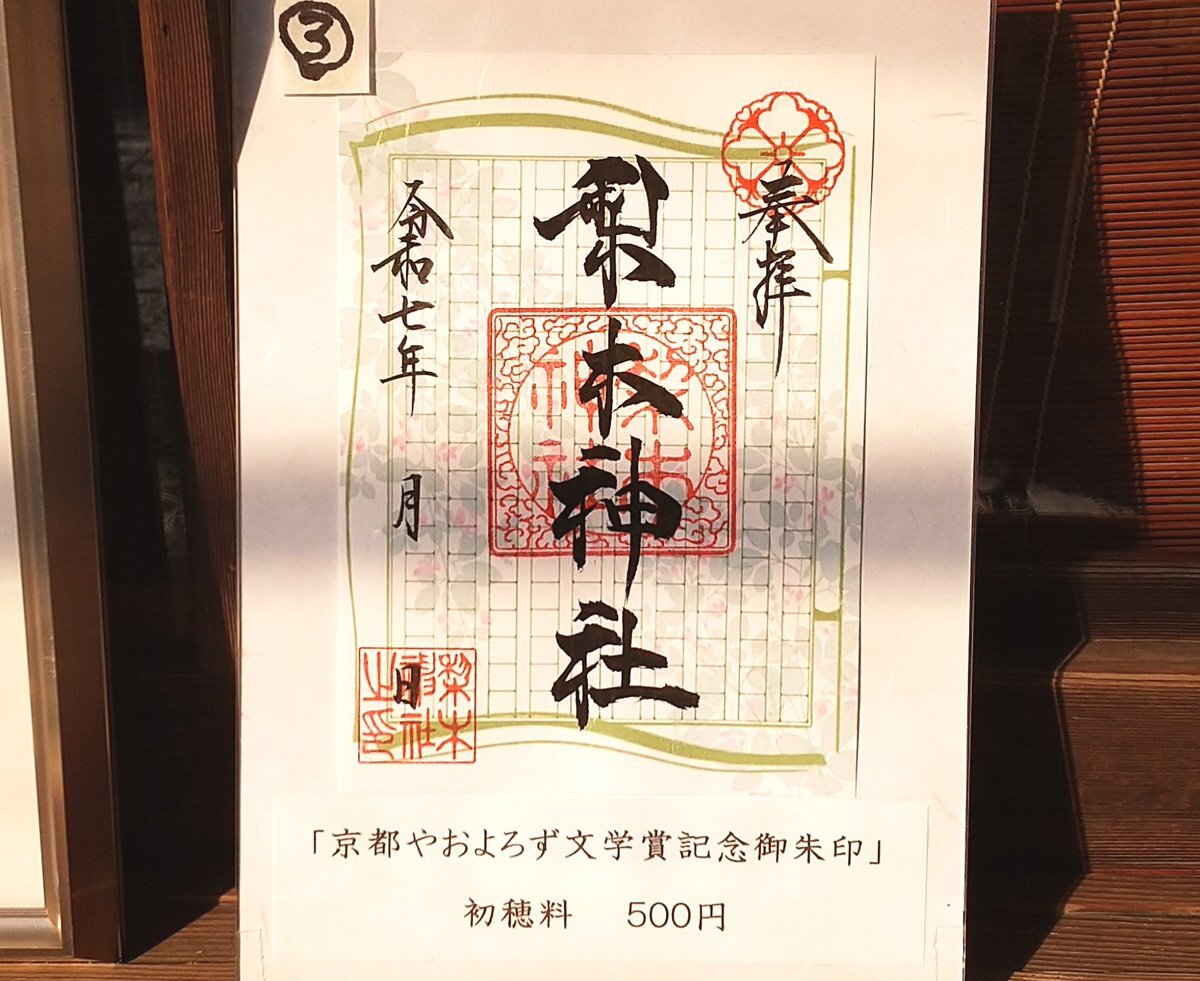 ③
奉拝
梨木神社
令和七年 月 日
梨木神社
梨木神社之印
「京都やおよろず文学賞記念御朱印」
初穂料 500円